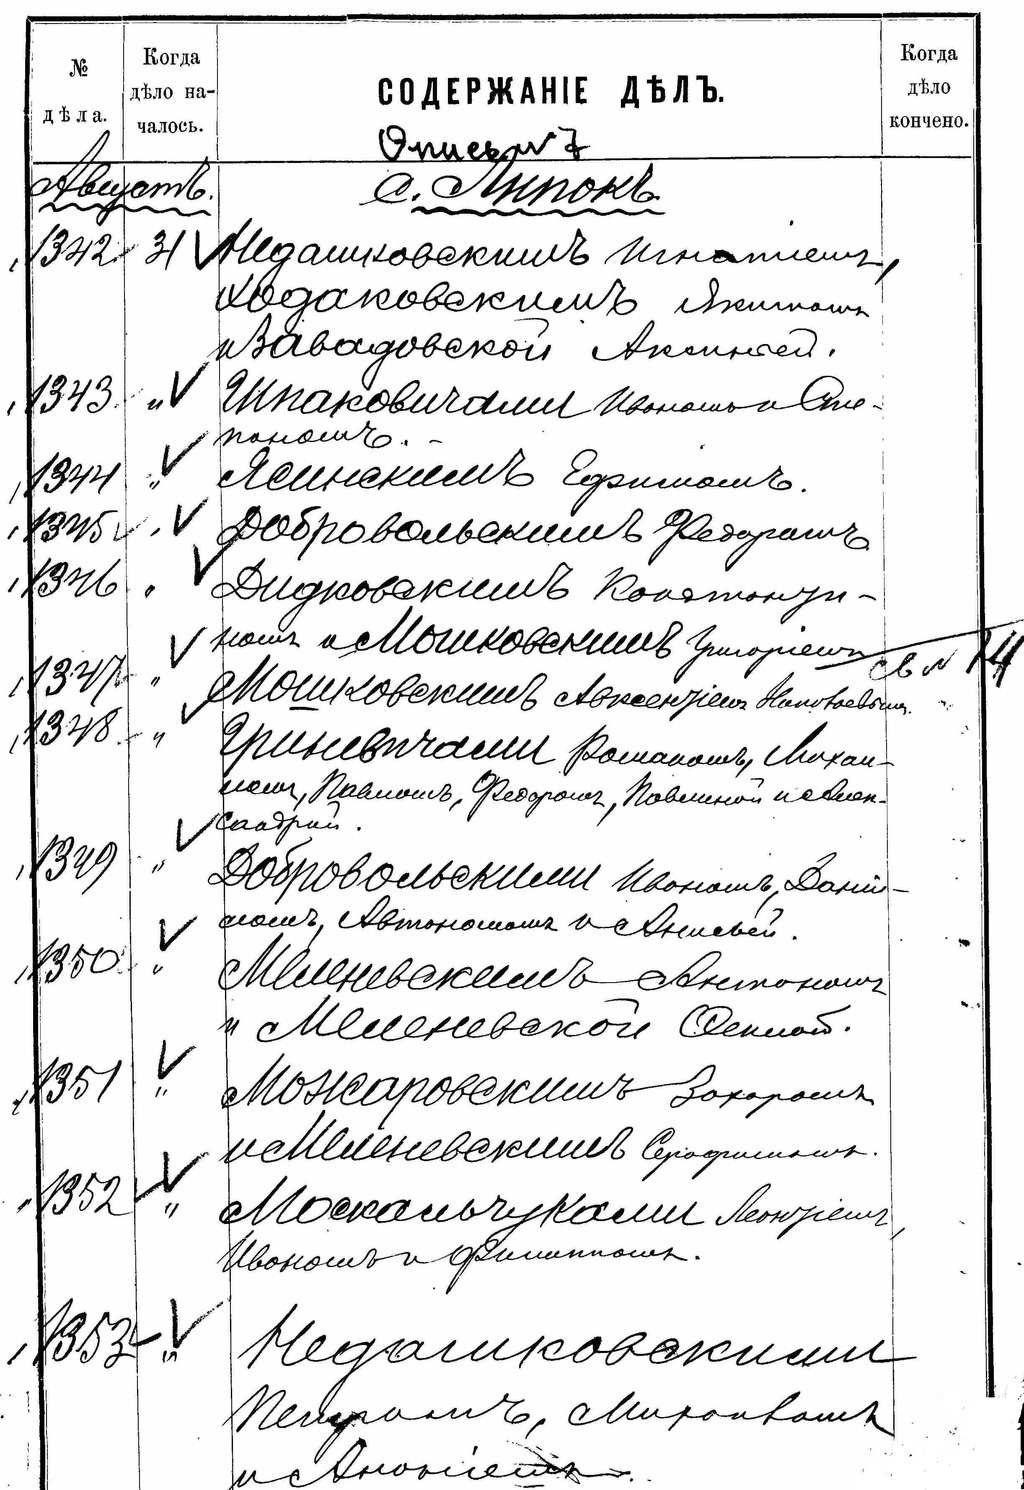 № дѣла.
Когда дѣло началось.
СОДЕРЖАНІЕ ДѢЛЪ.
Когда дѣло кончено.
Опись № 7
Августъ.
с. Янпокъ
1342 31 Недашковскимъ Игнатіемъ,
Ходаковскимъ Якимомъ
и Завадовской Аксиніей.
1343 " Шпаковичами Иваномъ и Сте-
паномъ.
1344 " Ясинскимъ Ефимомъ.
1345 " Добровольскимъ Федоромъ
1346 " Дидковскимъ Константи-
номъ и Мошковскимъ Григоріемъ
св № 14
1347 " Мошковскимъ Авксентіемъ
1348 " Гриневичами Романомъ, Михаи-
ломъ, Павломъ, Федоромъ, Павлиной и Алек-
сандрой.
1349 " Добровольскими Иваномъ, Дані-
иломъ, Автономомъ и Анисьей.
1350 " Меленевскимъ Антономъ
и Меленевской Феклой.
1351 " Можаровскимъ Захаромъ
и Меленевскимъ Серафимомъ.
1352 " Москальчуками Леонтіемъ,
Иваномъ и Филиппомъ.
1353 " Недашковскими
Петромъ, Михаиломъ
и Ананіемъ.